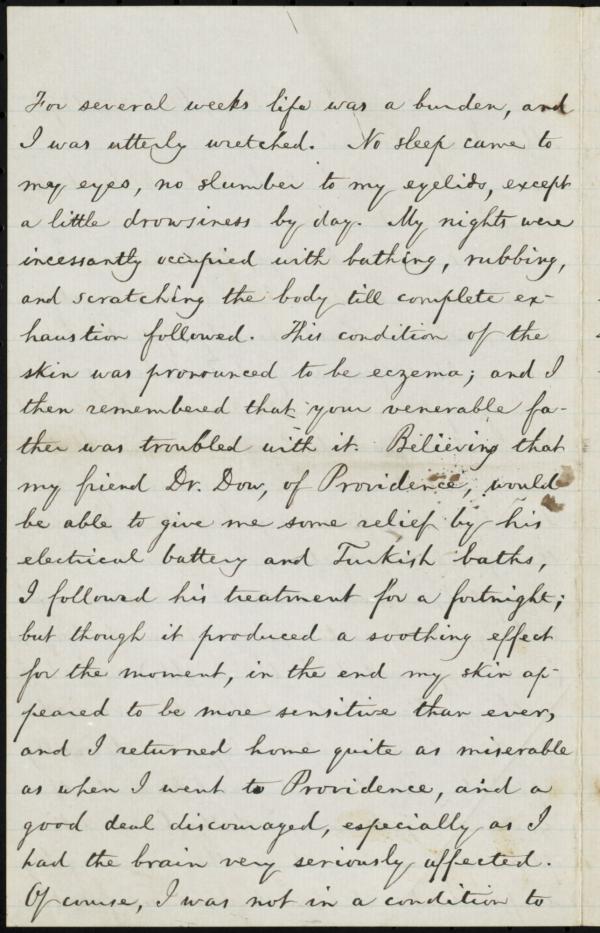 For several weeks life was a burden, and
I was utterly wretched. No sleep came to
my eyes, no slumber to my eyelids, except
a little drowsiness by day. My nights were
incessantly occupied with bathing, rubbing,
and scratching the body till complete ex-
haustion followed. This condition of the
skin was pronounced to be eczema; and I
then remembered that your venerable fa-
ther was troubled with it. Believing that
my friend Dr. Dow, of Providence, would
be able to give me some relief by his
electrical battery and Turkish baths,
I followed his treatment for a fortnight;
but though it produced a soothing effect
for the moment, in the end my skin ap-
peared to be more sensitive than ever,
and I returned home quite as miserable
as when I went to Providence, and a
good deal discouraged, especially as I
had the brain very seriously affected.
Of course, I was not in a condition to